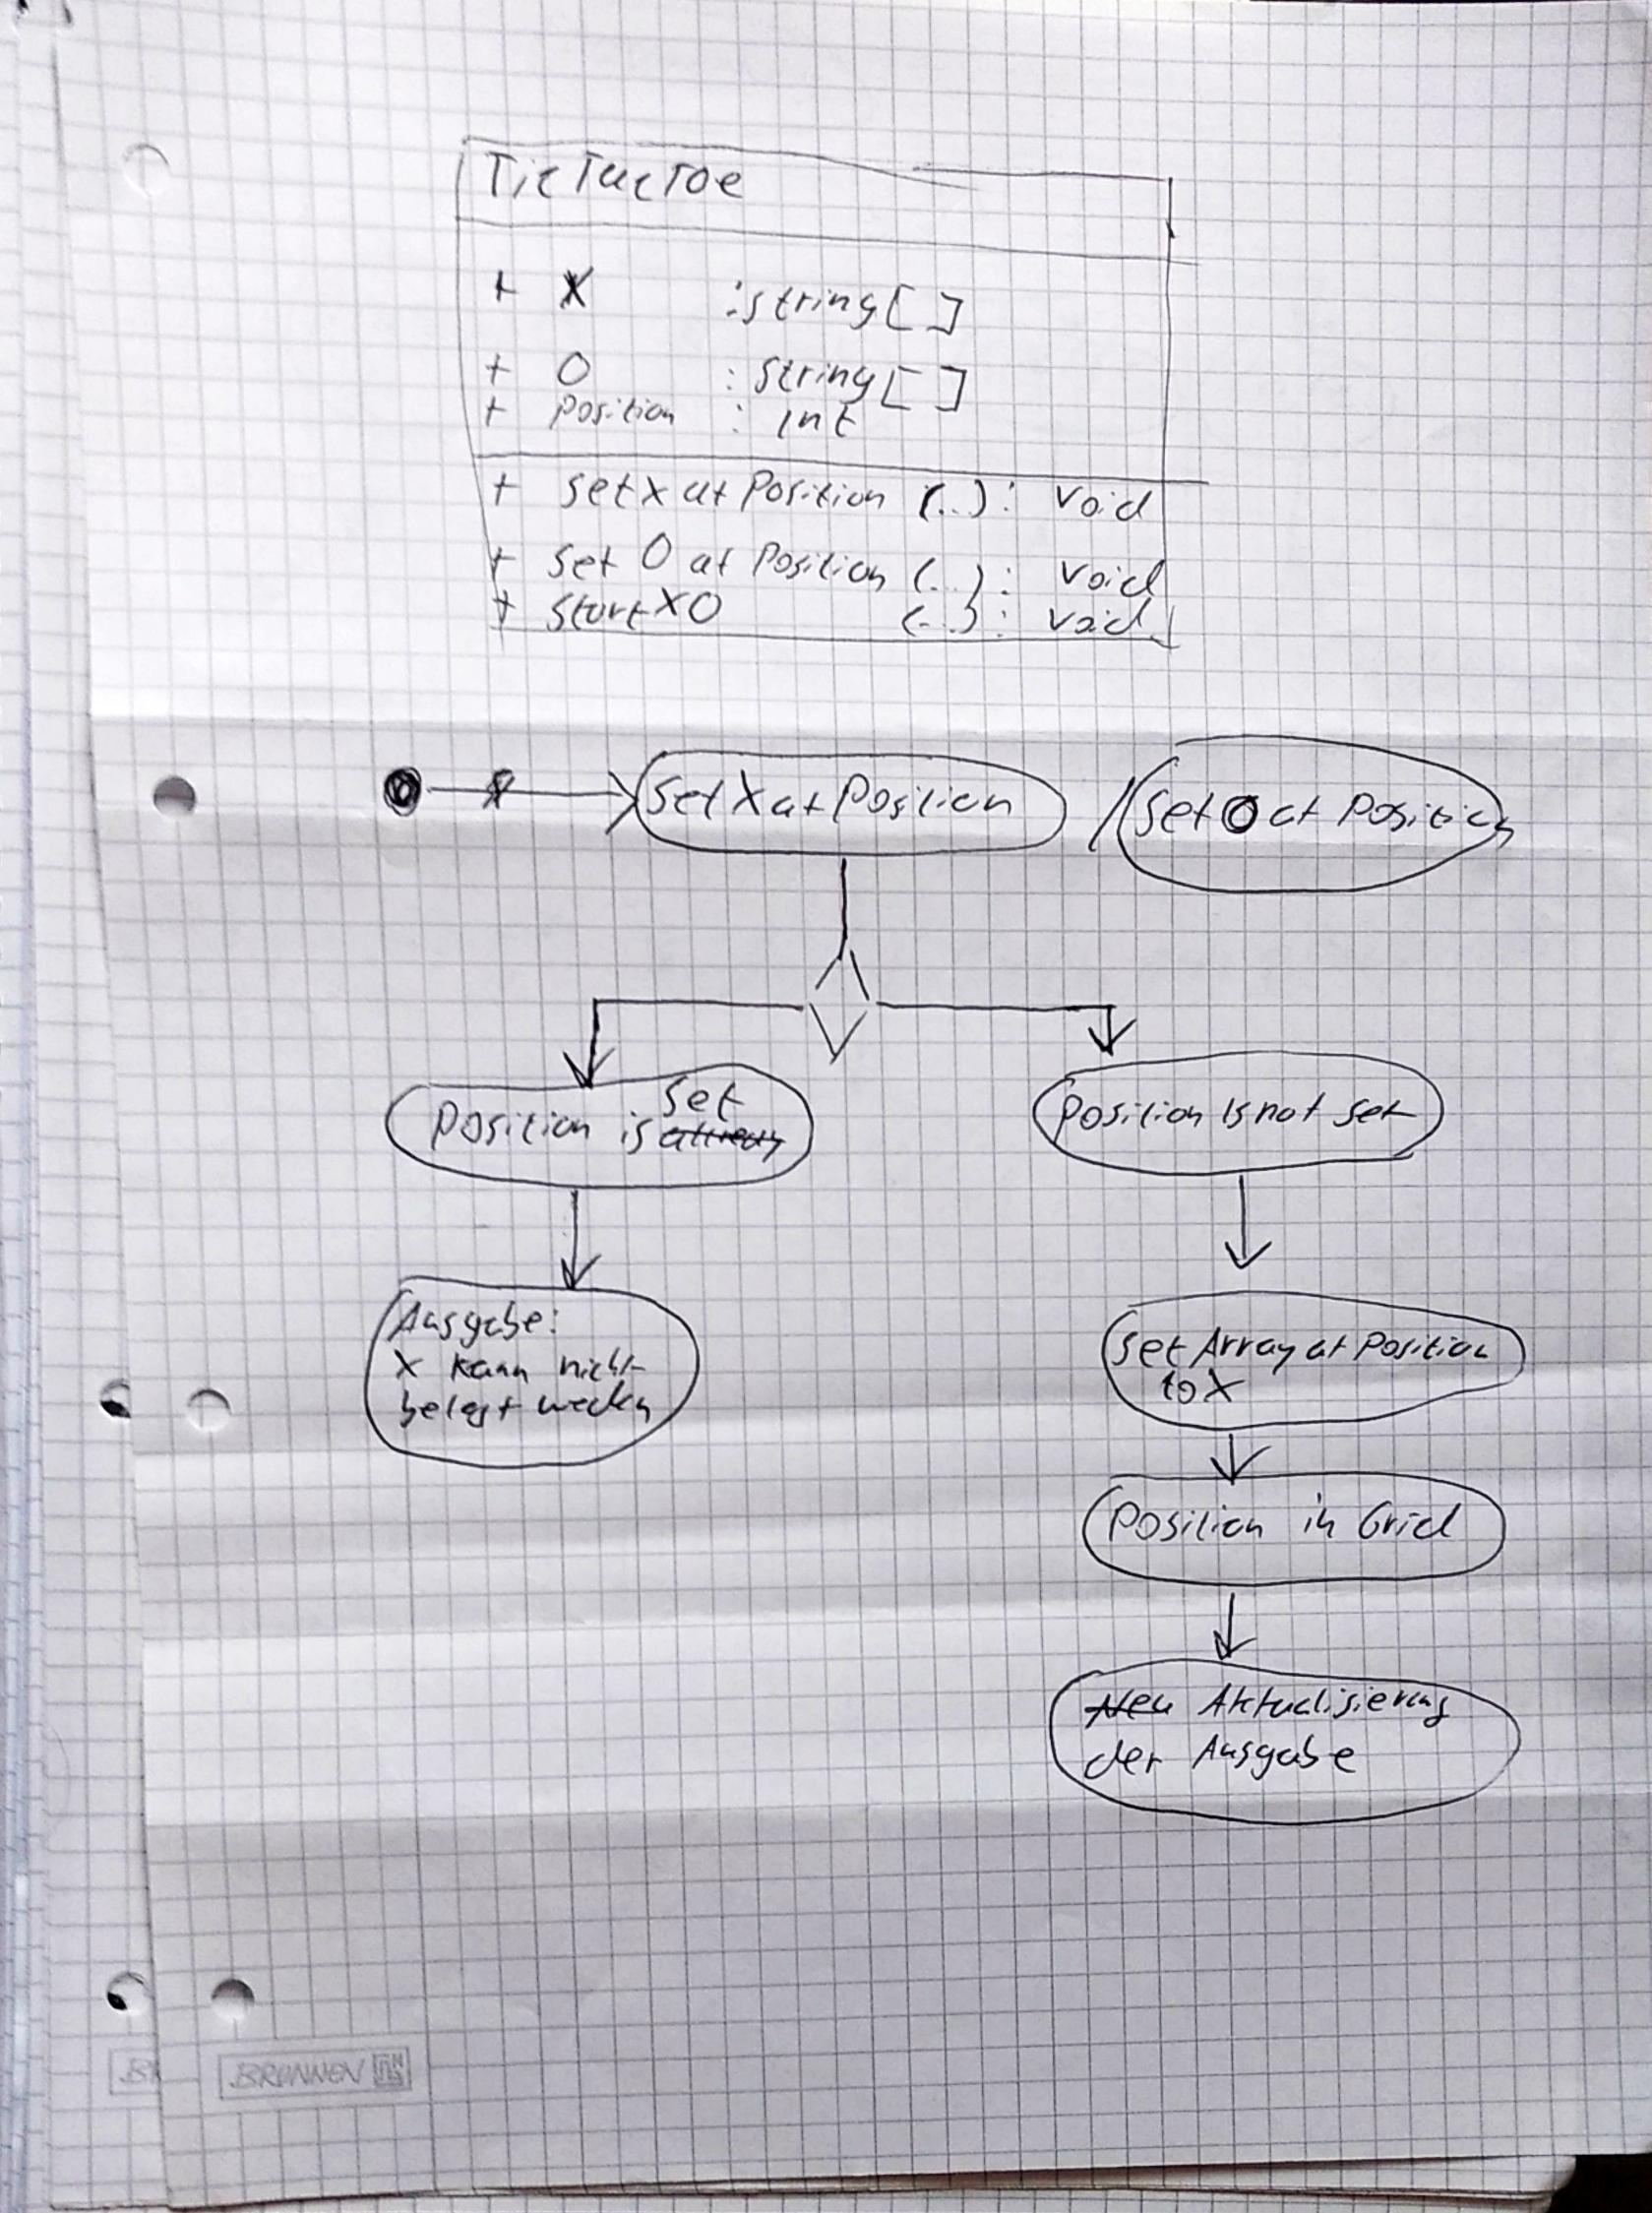 TicTacToe
+ X : string[ ]
+ O : string[ ]
+ Position : Int
+ setX at Position (..) : void
+ set O at Position (..) : void
+ StartXO (..) : void
set X at Position / set O at Position
Position is set
Position is not set
Ausgabe:
X kann nicht
belegt werden
set Array at Position
to X
Position in Grid
Neu Aktualisierung
der Ausgabe
BRUNNEN